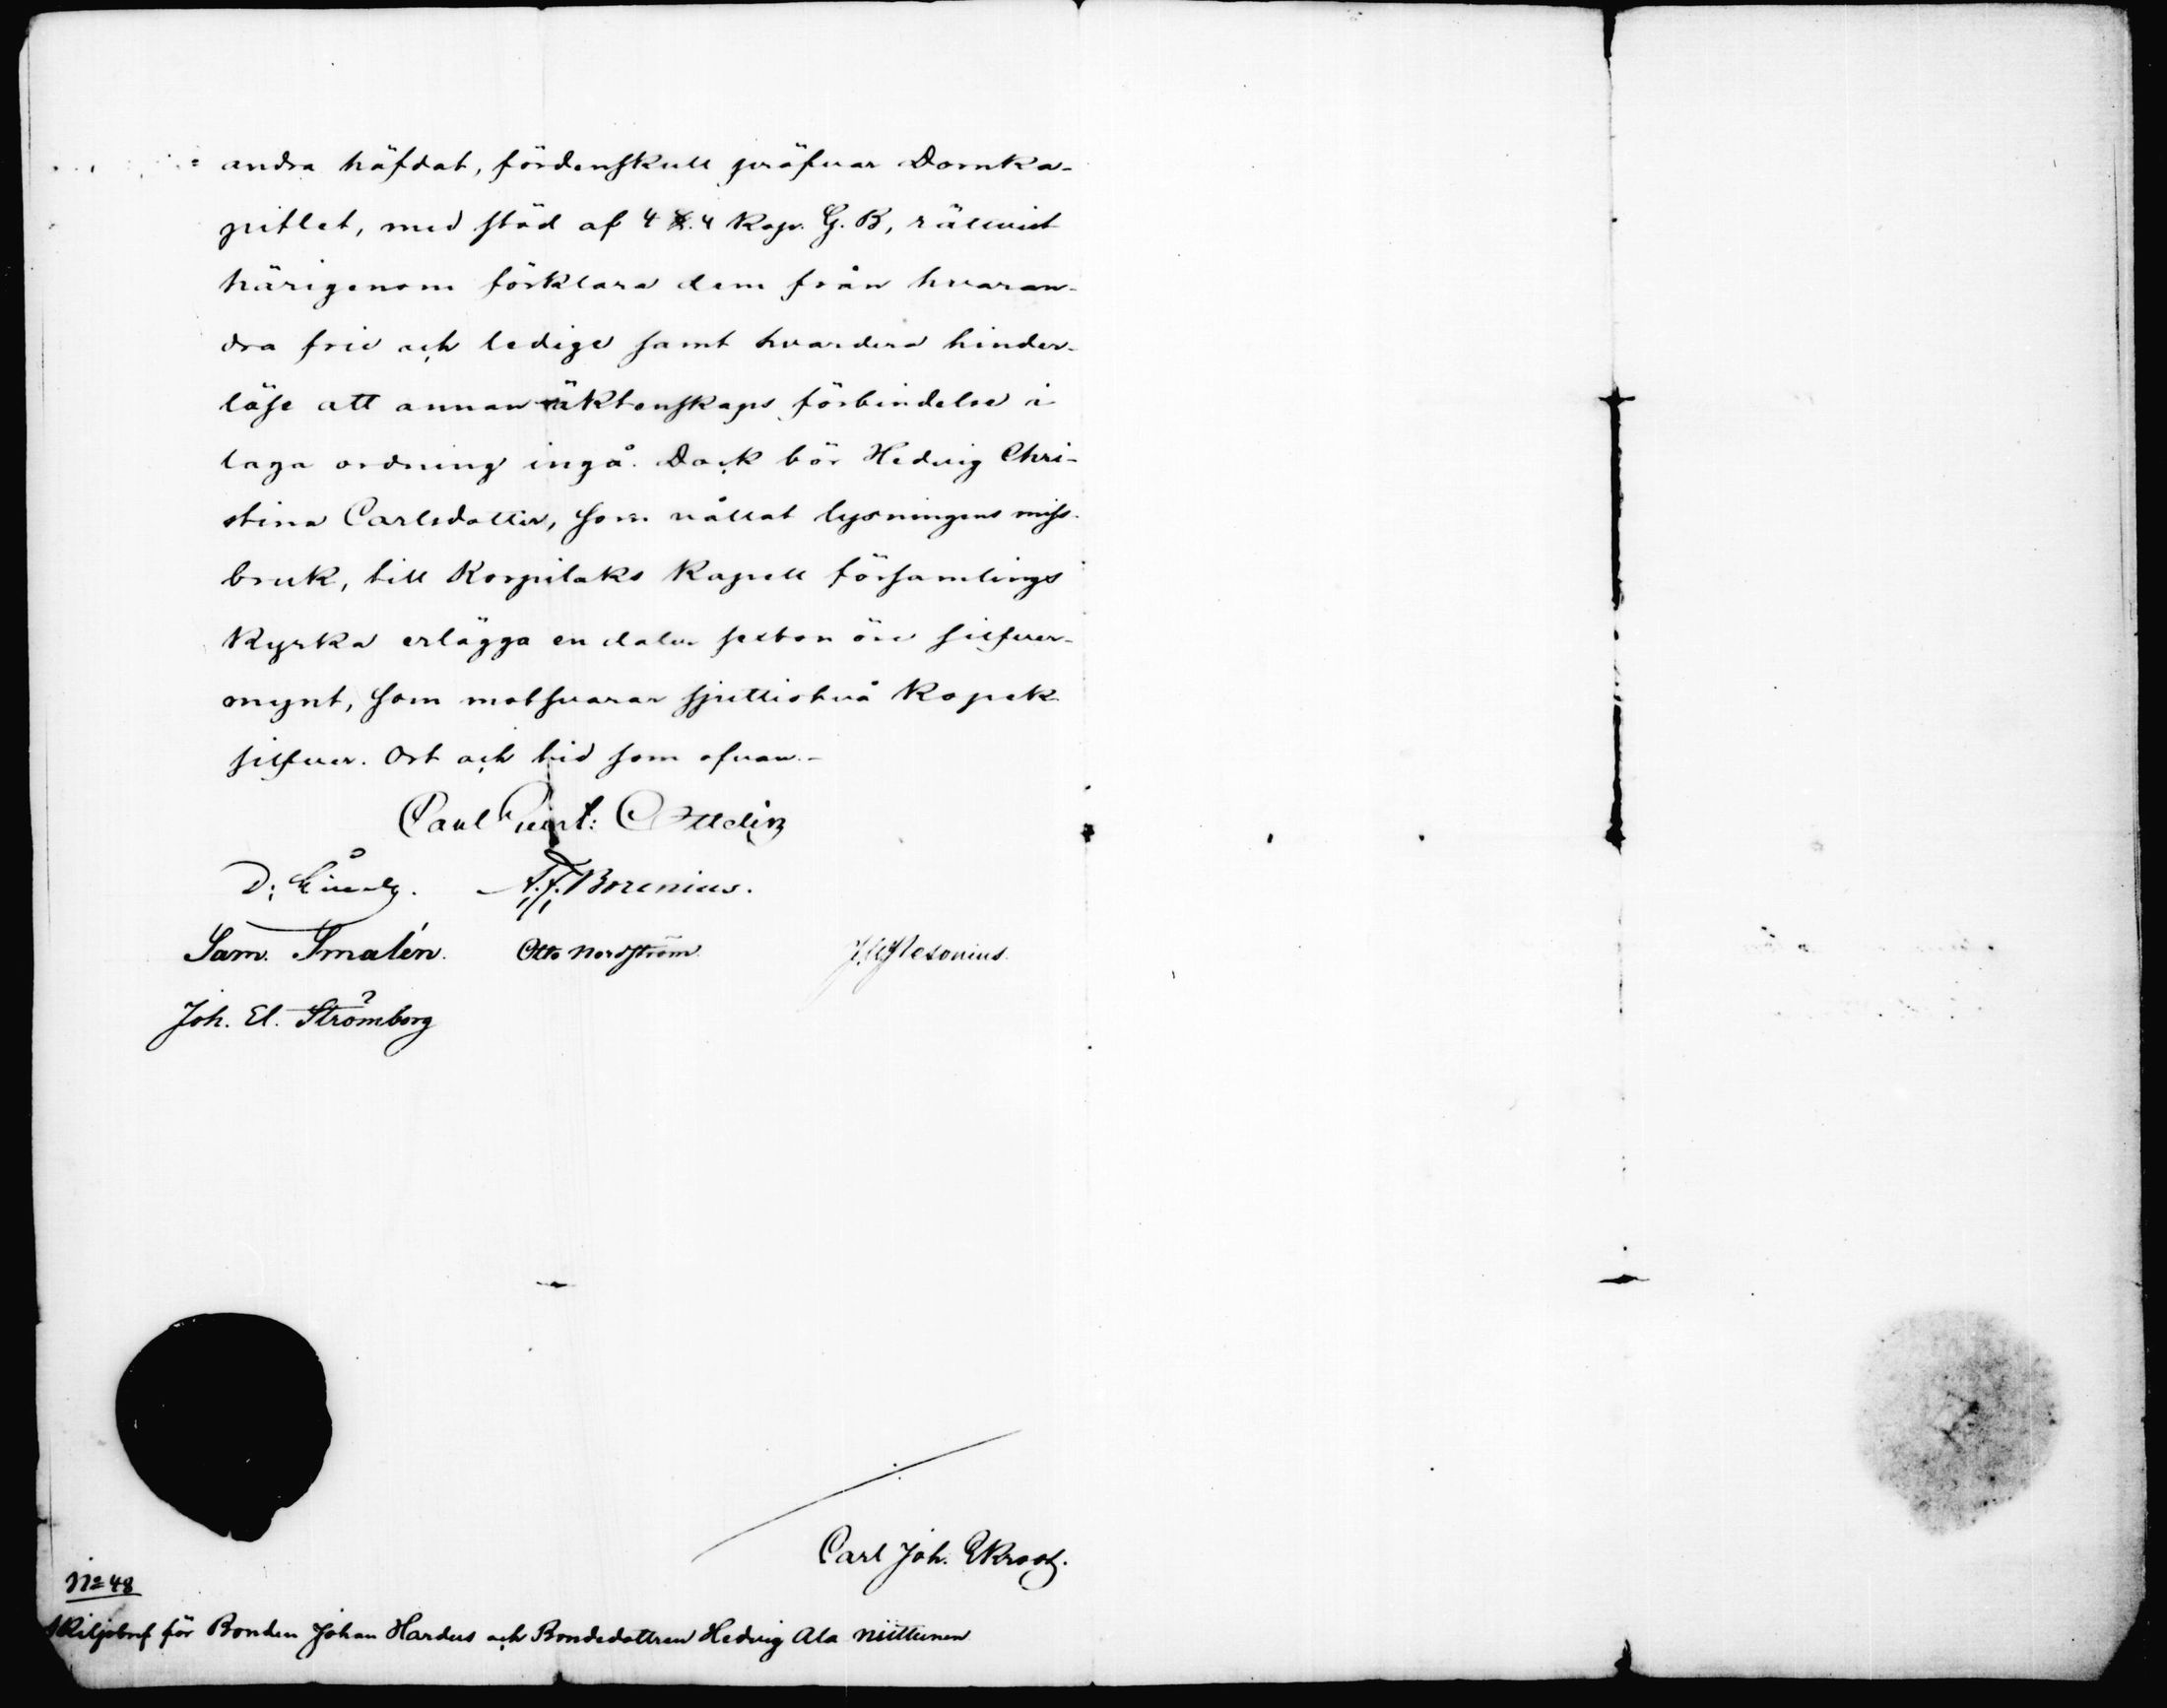 andra häfdat, fördenskull pröfvar Domka-
pitlet, med stöd af 4 §. 4 Kap. G. B, rättvist
härigenom förklara dem från hvaran-
dra frie och ledige samt hvardera hinder-
löse att annan äktenskaps förbindelse i
laga ordning ingå. Dock bör Hedvig Chri-
stina Carlsdotter, som vållat lysningens miss-
bruk, till Korpilaks Kapell församlings
Kyrka erlägga en daler sexton öre silfver-
mynt, som motsvarar sjuttiotvå Kopek
silfver. Ort och tid som ofvan.-
Carl Ottelin
D: A. J. Borenius.
Sam. Smalén. Otto Nordström
Joh. El. Strömborg
Carl Joh. Ekroos.
No 48
Skiljobref för Bonden Johan Hardus och Bondedottren Hedvig Ala Niittunen